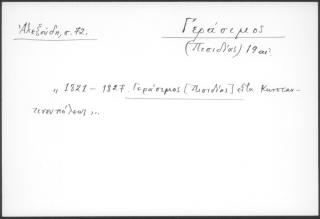 Ἀλεξούδη, σ. 72.
Γεράσιμος
(Πισιδίας) 19 αι.
„ 1821 – 1827. Γεράσιμος [Πισιδίας] εἶτα Κωνσταν-
τινουπόλεως „.